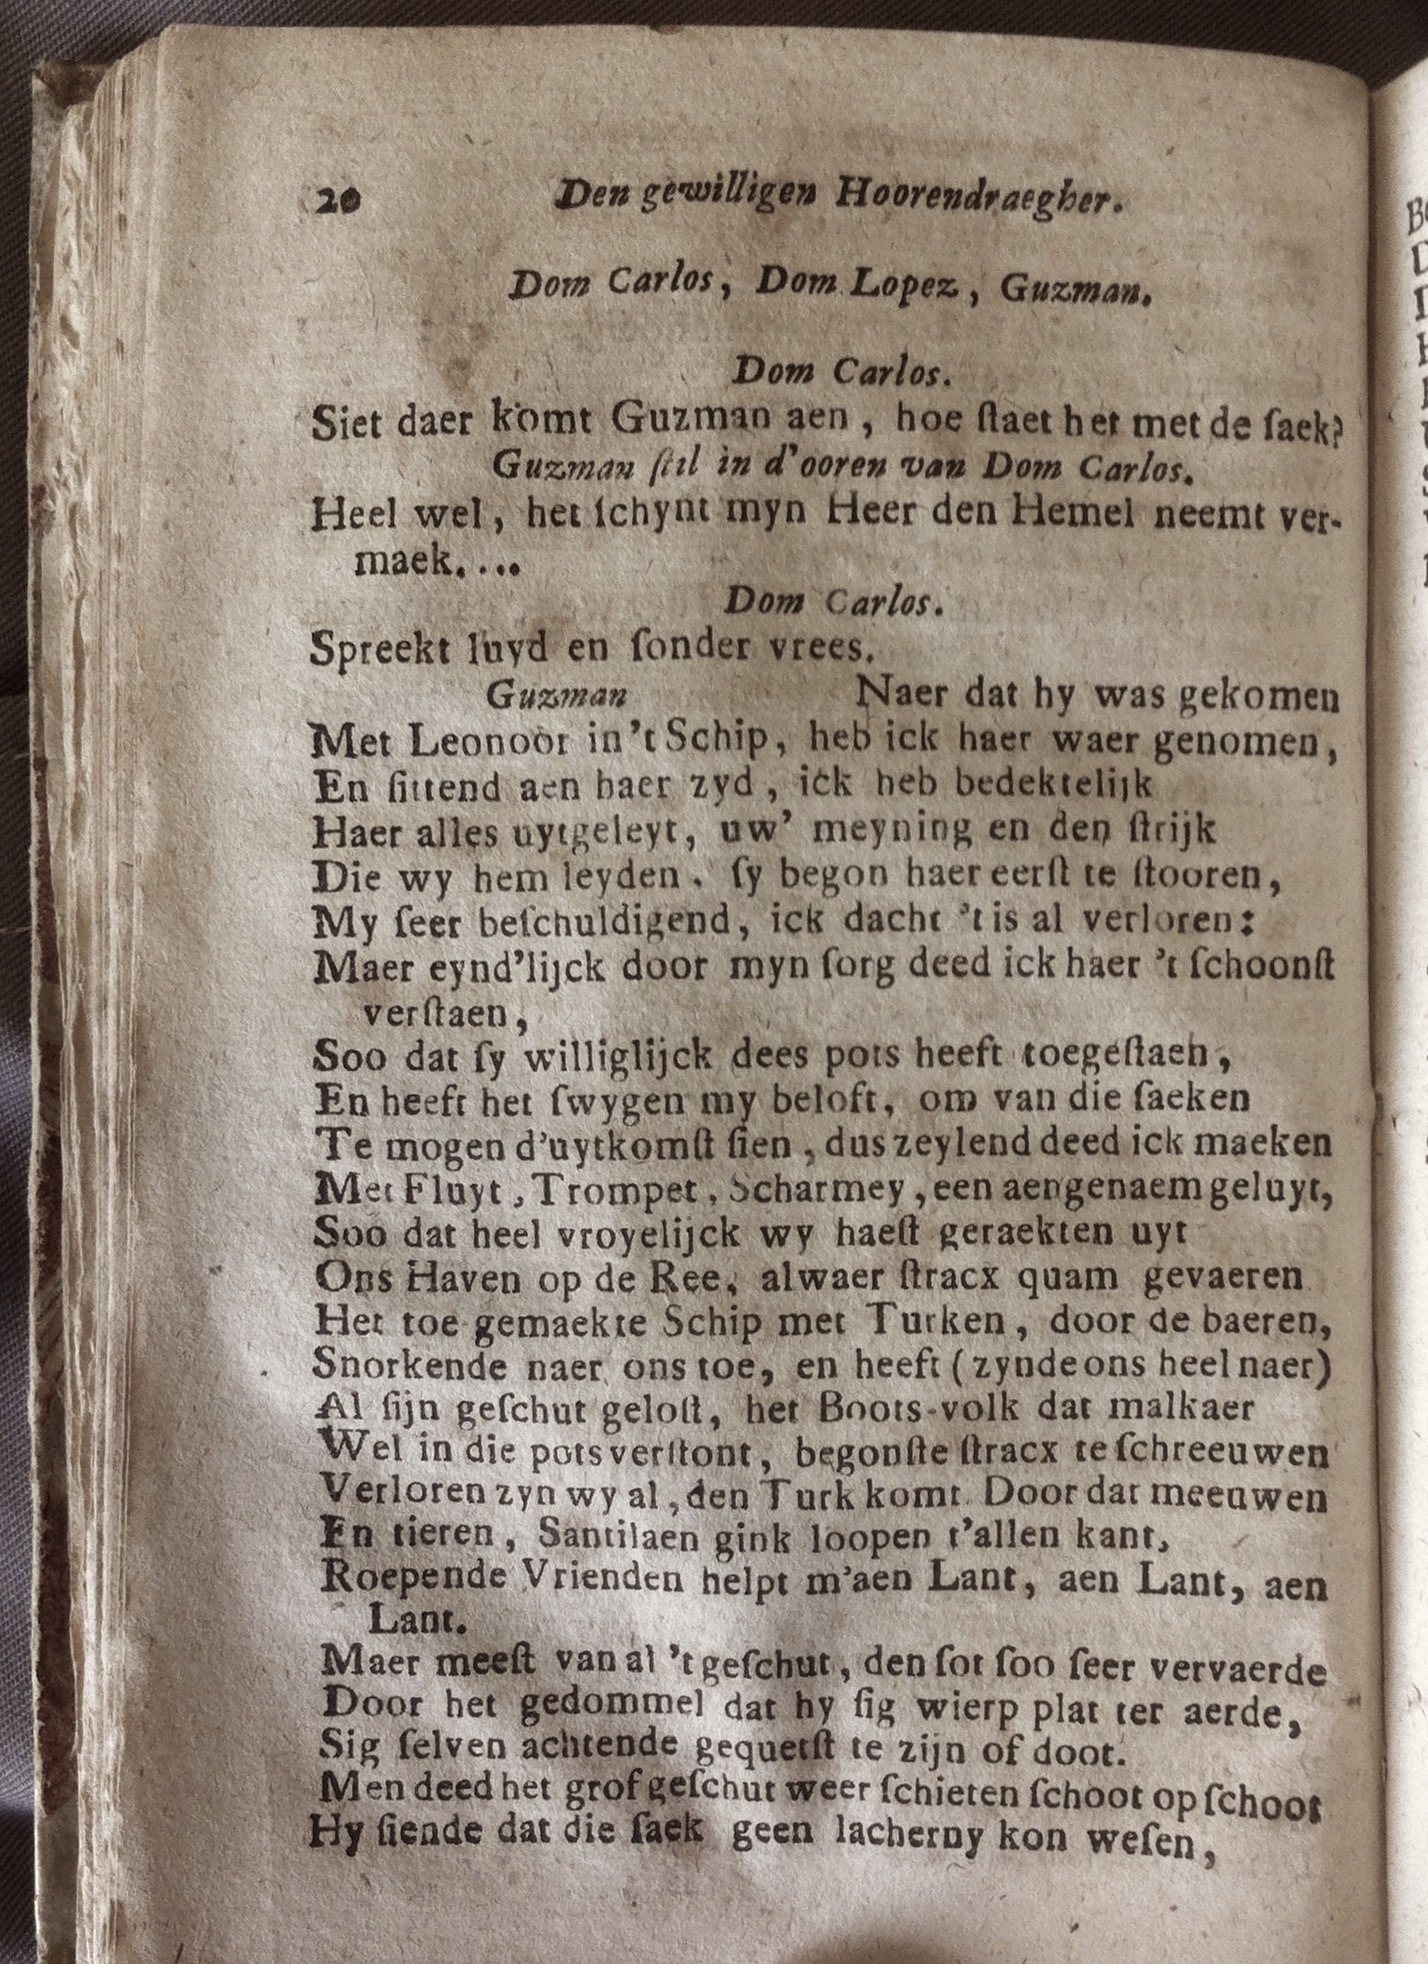 20 Den gewilligen Hoorendraegher.
Dom Carlos, Dom Lopez, Guzman.
Dom Carlos.
Siet daer komt Guzman aen, hoe ſtaet het met de ſaek?
Guzman ſtil in d'ooren van Dom Carlos.
Heel wel, het ſchynt myn Heer den Hemel neemt ver-
maek....
Dom Carlos.
Spreekt luyd en ſonder vrees.
Guzman Naer dat hy was gekomen
Met Leonoor in't Schip, heb ick haer waer genomen,
En ſittend aen haer zyd, ick heb bedektelijk
Haer alles uytgeleyt, uw' meyning en den ſtrijk
Die wy hem leyden. ſy begon haer eerſt te ſtooren,
My ſeer beſchuldigend, ick dacht 't is al verloren:
Maer eynd'lijck door myn ſorg deed ick haer 't ſchoonſt
verſtaen,
Soo dat ſy williglijck dees pots heeft toegeſtaen,
En heeft het ſwygen my beloft, om van die ſaeken
Te mogen d'uytkomſt ſien, dus zeylend deed ick maeken
Met Fluyt, Trompet, Scharmey, een aengenaem geluyt,
Soo dat heel vroyelijck wy haeſt geraekten uyt
Ons Haven op de Ree, alwaer ſtracx quam gevaeren
Het toe gemaekte Schip met Turken, door de baeren,
Snorkende naer ons toe, en heeft (zynde ons heel naer)
Al ſijn geſchut geloſt, het Boots-volk dat malkaer
Wel in die pots verſtont, begonſte ſtracx te ſchreeuwen
Verloren zyn wy al, den Turk komt. Door dat meeuwen
En tieren, Santilaen gink loopen t'allen kant,
Roepende Vrienden helpt m'aen Lant, aen Lant, aen
Lant.
Maer meeſt van al 't geſchut, den ſot ſoo ſeer vervaerde
Door het gedommel dat hy ſig wierp plat ter aerde,
Sig ſelven achtende gequetſt te zijn of doot.
Men deed het grof geſchut weer ſchieten ſchoot op ſchoot
Hy ſiende dat die ſaek geen lacherny kon weſen,